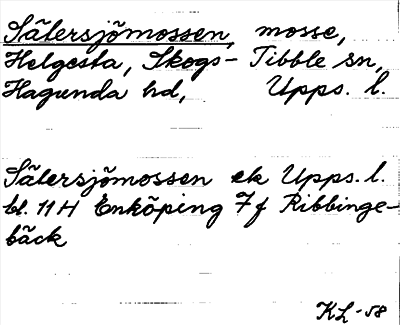 Sätersjömossen, mosse,
Helgesta, Skogs-Tibble sn,
Hagunda hd, Upps. l.
Sätersjömossen ek Upps. l.
bl. 11 H Enköping 7f Ribbinge-
bäck
KL-58